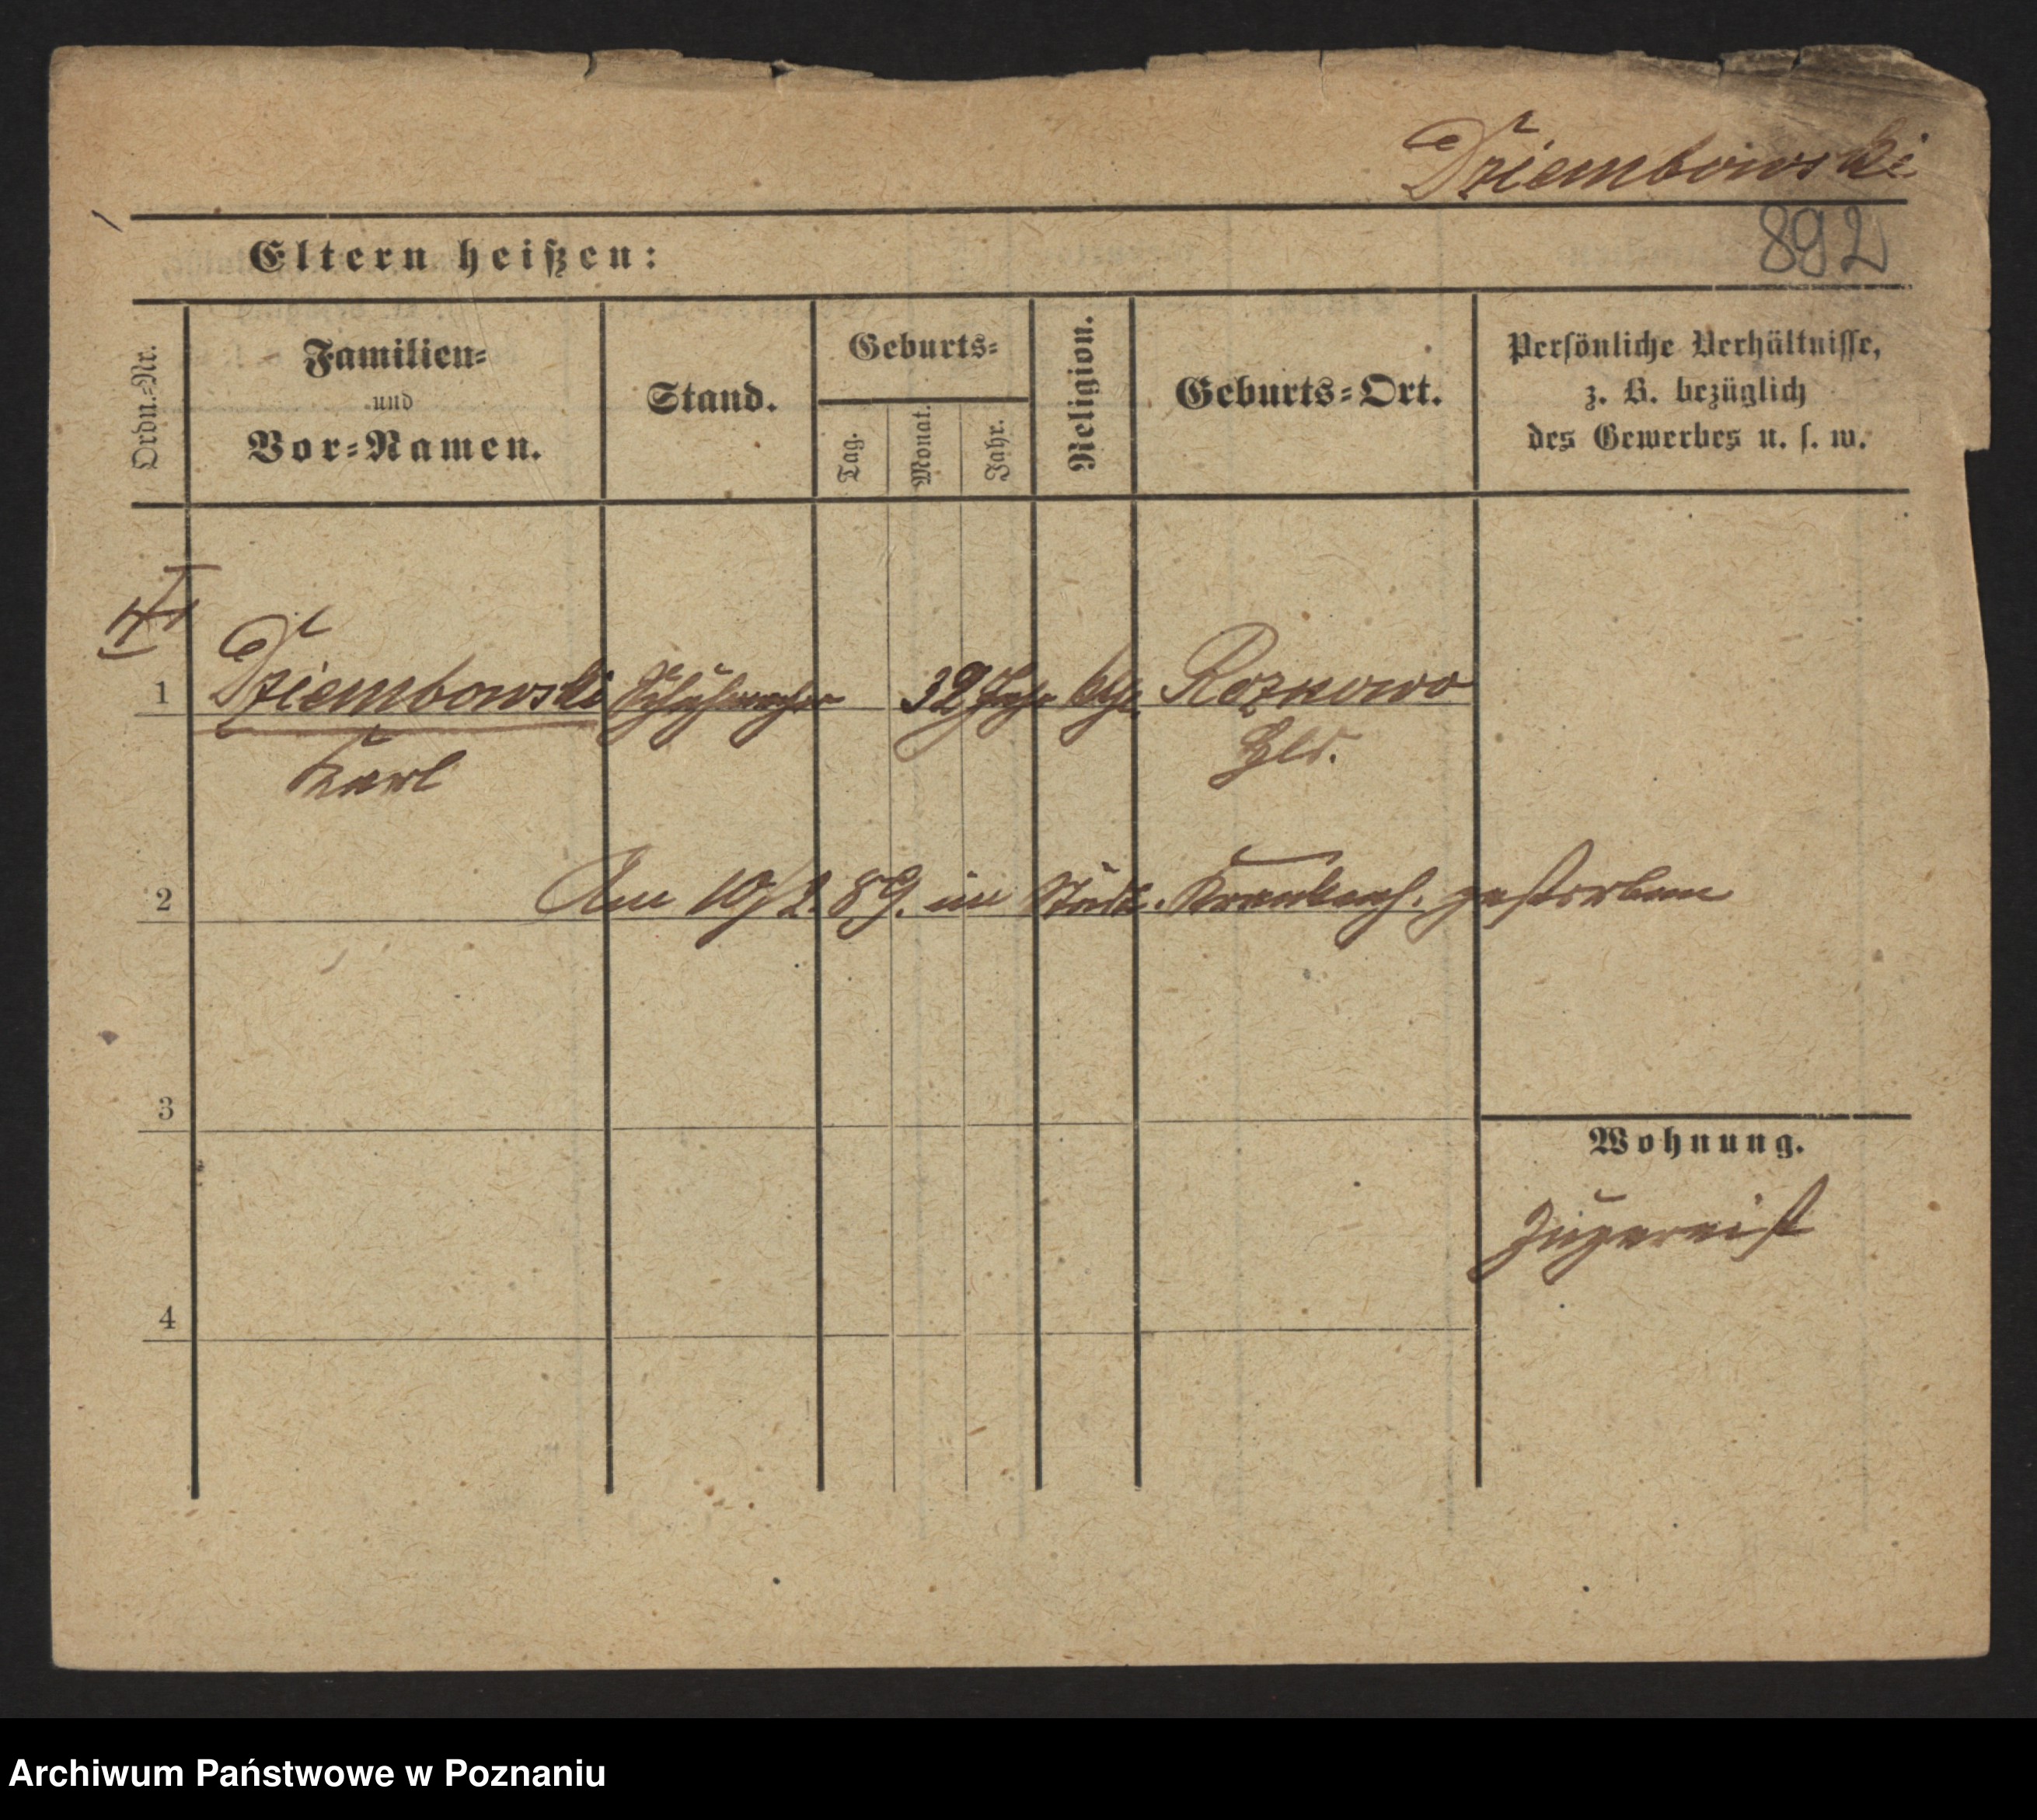 Dziembowski
892
Eltern heißen:
Ordn.=Nr.
Familien=
und
Vor=Namen.
Stand.
Geburts=
Tag.
Monat.
Jahr.
Religion.
Geburts=Ort.
Persönliche Verhältnisse,
z. B. bezüglich
des Gewerbes u. s. w.
1 Dziembowski Schuhmacher 32 Jahr kth. Roznowo
Karl
2 Am 10/2. 89. im Städt. Krankenh. gestorben
3
Wohnung.
Zugereist
4
Archiwum Państwowe w Poznaniu